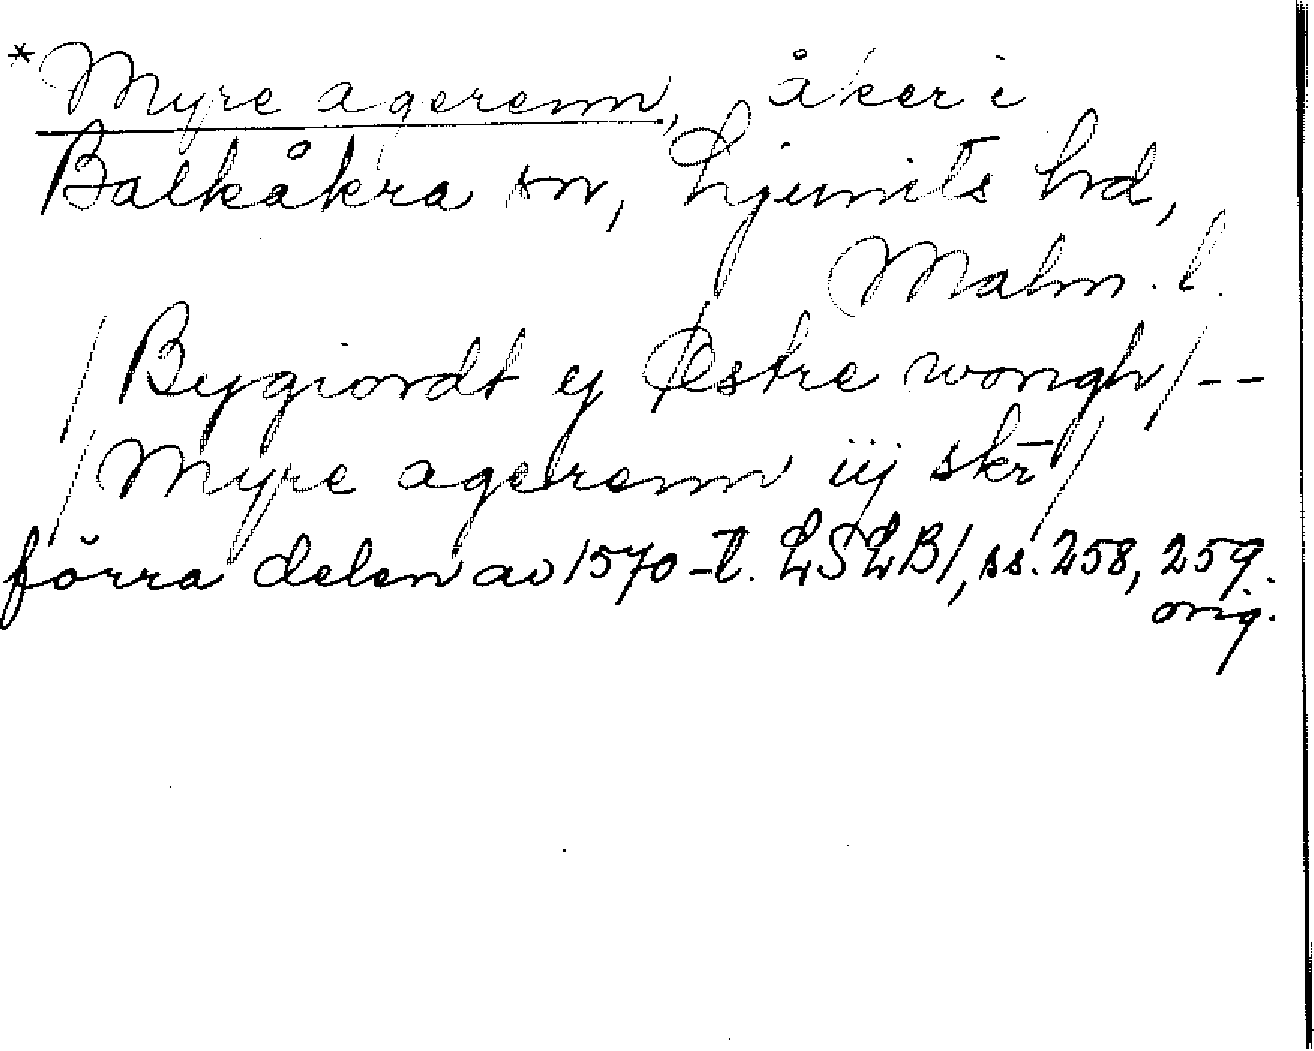 *Myre agerenn, åker i
Balkåkra sn, Ljunits hd,
Malm. l.
/Bygiordt ej Østre wongh/--
/Myre agerenn iij skr̄/
förra delen av 1570-t. LSLB1, ss. 258, 259.
orig.